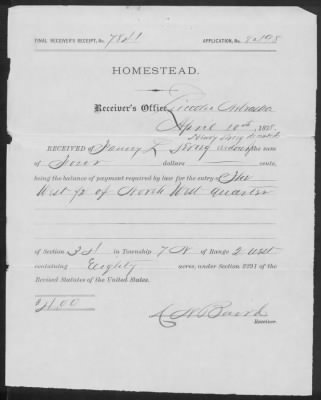 FINAL RECEIVER'S RECEIPT, No. 7841
APPLICATION, No.
HOMESTEAD.
Receiver's Office, Lincoln Nebraska
April 10th, 187
RECEIVED of Fanny L Strong widow the sum
of Four dollars cents,
being the balance of payment required by law for the entry of The
West ½ of North West quarter
of Section 34 in Township 7 N of Range 2 West
containing Eighty acres, under Section 2291 of the
Revised Statutes of the United States.
$4.00
Receiver.